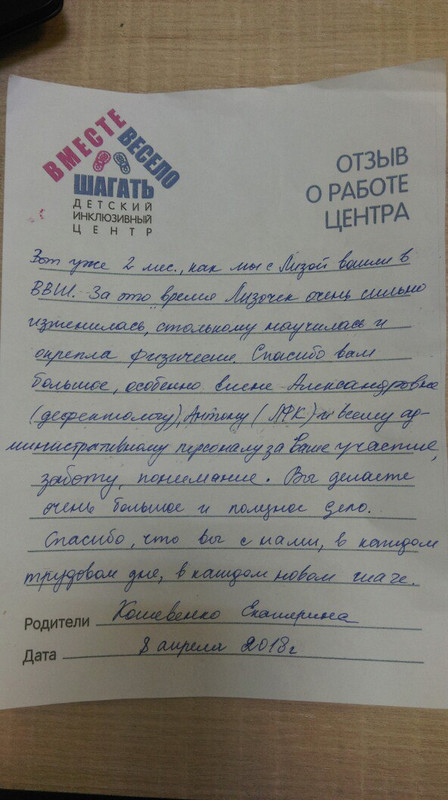 ВМЕСТЕ
ВЕСЕЛО
ШАГАТЬ
ДЕТСКИЙ
ИНКЛЮЗИВНЫЙ
ЦЕНТР
ОТЗЫВ
О РАБОТЕ
ЦЕНТРА
Вот уже 2 мес., как мы с Лизой вошли в
ВВШ. За это время Лизочек очень сильно
изменилась, стольному научилась и
окрепла физически. Спасибо вам
большое, особенно Александровне
(дефектологу), Антону (ЛФК) и всему ад-
министративному персоналу за Ваше участие,
заботу, понимание. Вы делаете
очень большое и полезное дело.
Спасибо, что вы с нами, в каждом
трудовом дне, в каждом новом шаге.
Родители Кошевенко Екатерина
Дата 8 апреля 2018г